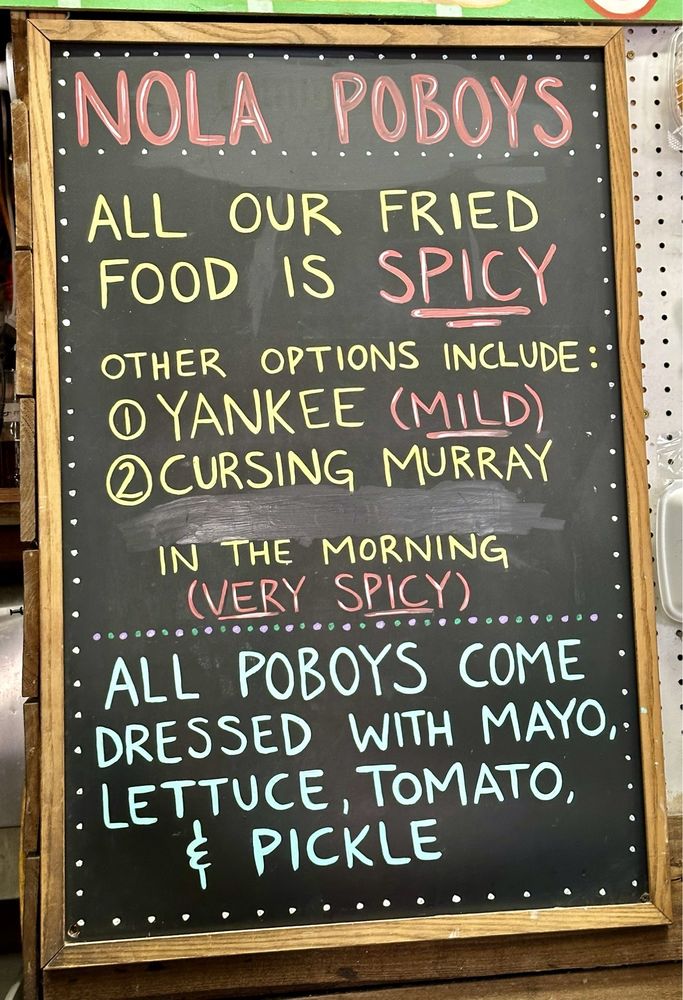 NOLA POBOYS
ALL OUR FRIED
FOOD IS SPICY
OTHER OPTIONS INCLUDE:
① YANKEE (MILD)
② CURSING MURRAY
IN THE MORNING
(VERY SPICY)
ALL POBOYS COME
DRESSED WITH MAYO,
LETTUCE, TOMATO,
& PICKLE